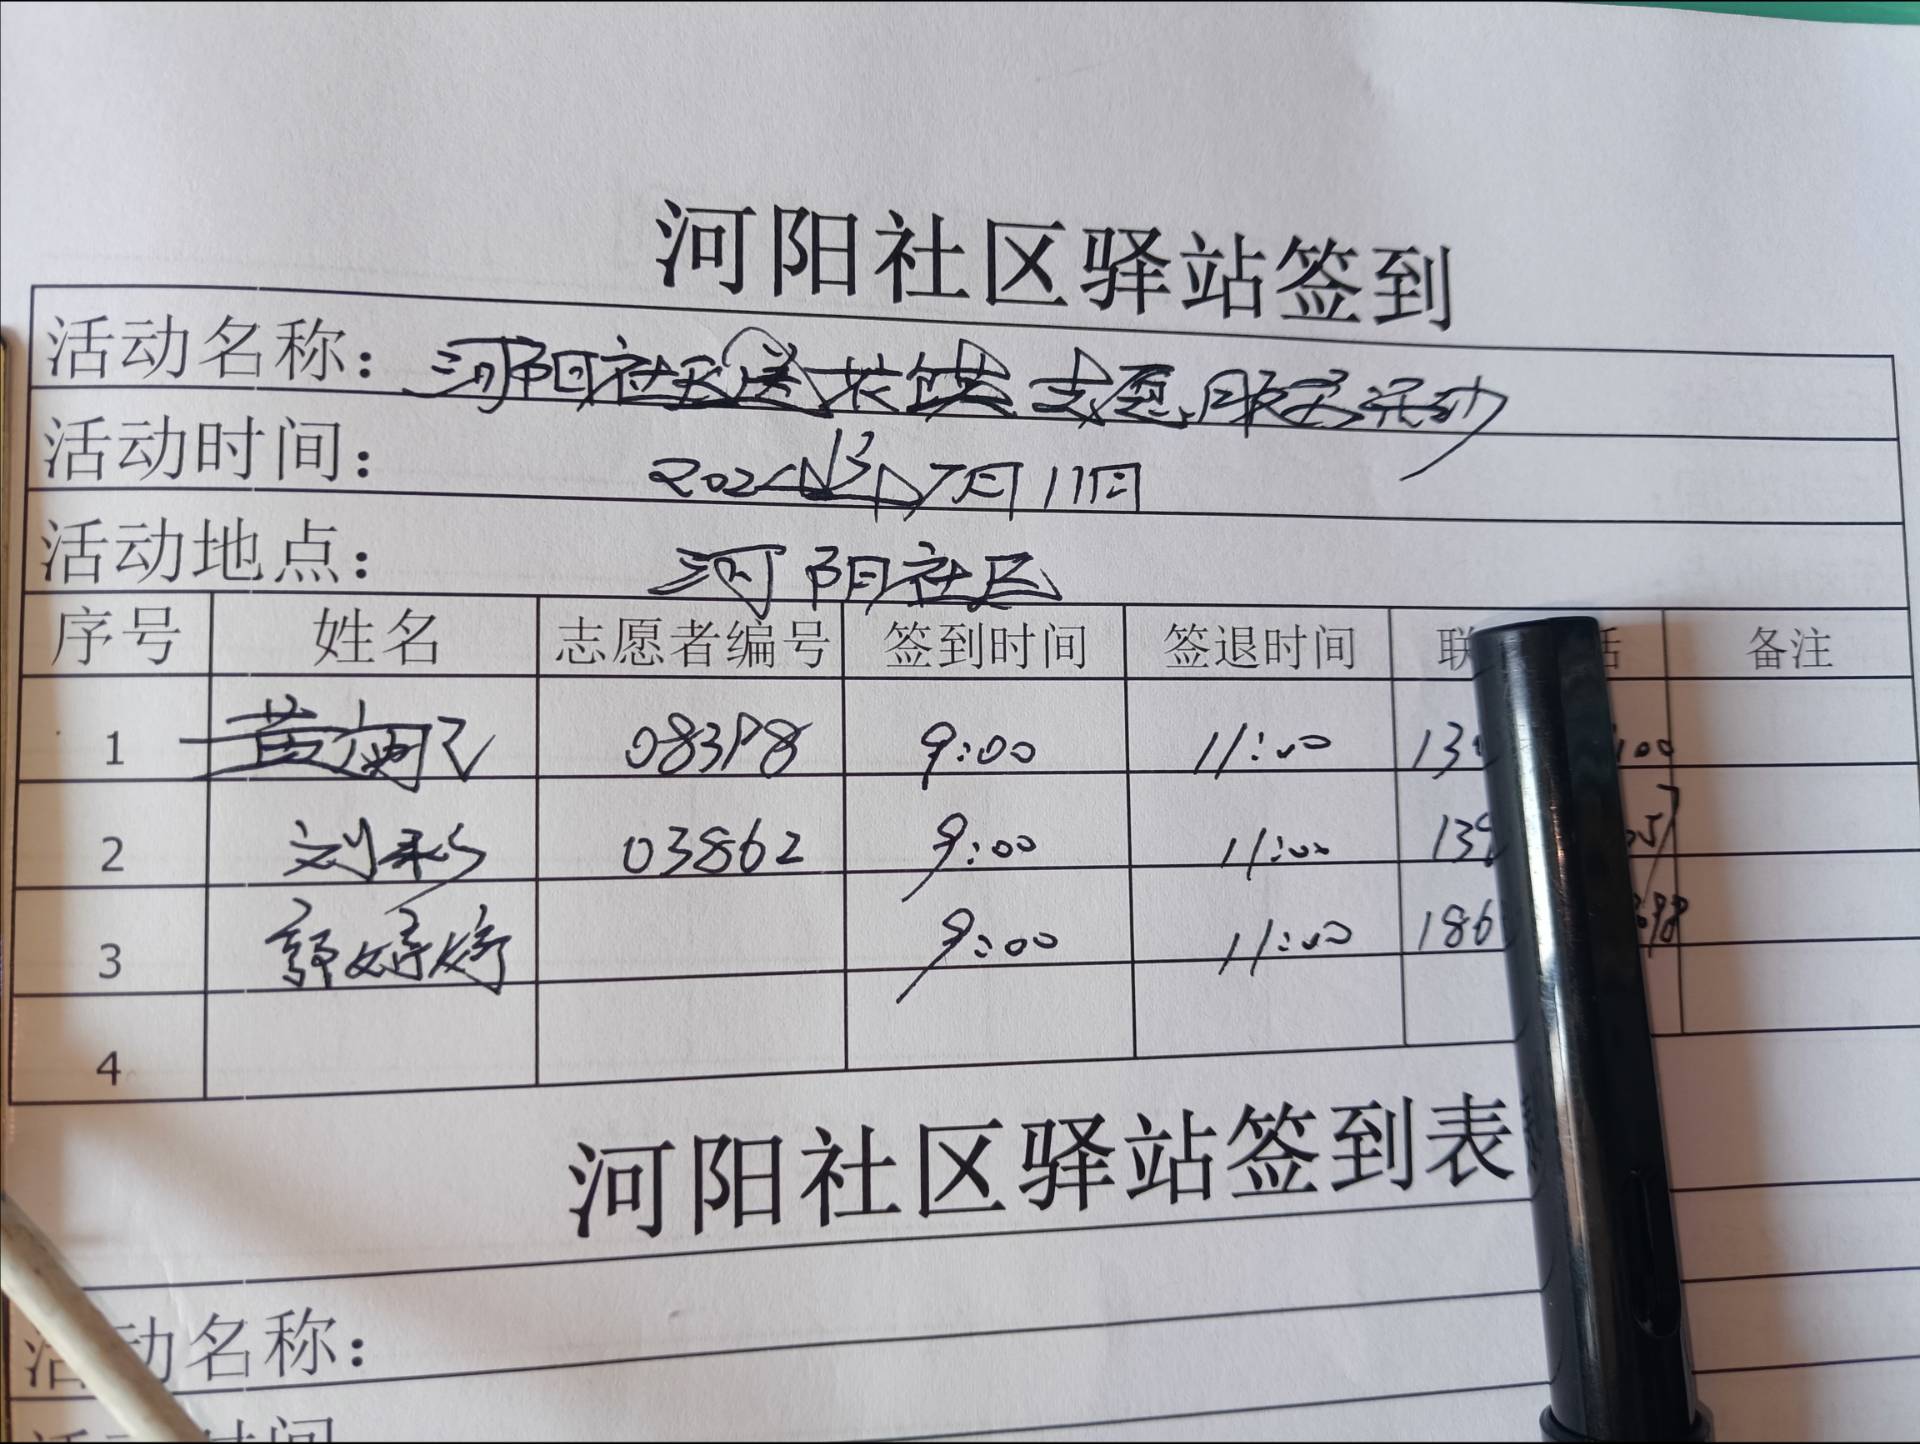 河阳社区驿站签到
活动名称：河阳社区送 志愿服务活动
活动时间：7月11日
活动地点：河阳社区
序号 姓名 志愿者编号 签到时间 签退时间 联 话 备注
1 黄 9:00 11:00 13 00
2 刘彩 03862 9:00 11:00 139 57
3 郭婷婷 9:00 11:00 186 98
4
河阳社区驿站签到表
活动名称：
时间